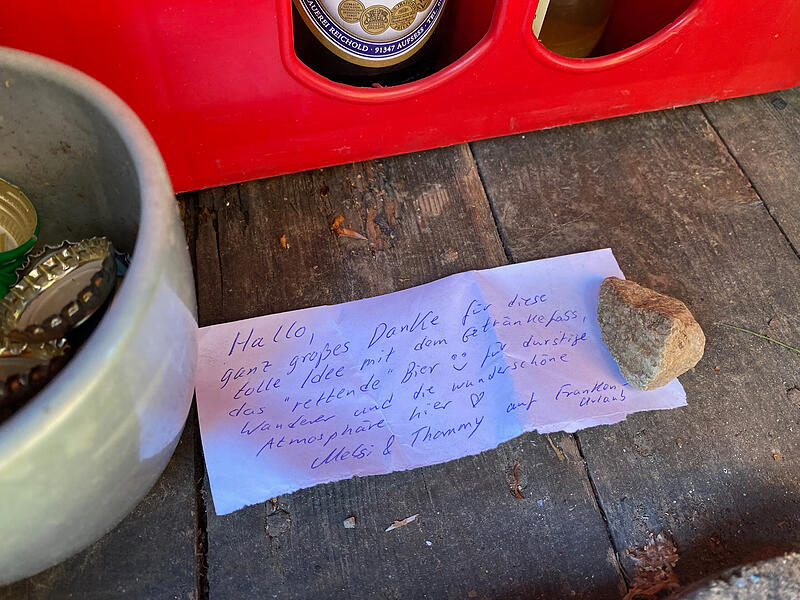 AUEREI REICHOLD · 91347 AUFSESS · T
Hallo,
ganz großes Danke für diese
tolle Idee mit dem Getränkefass,
das "rettende" Bier für durstige
Wanderer und die wunderschöne
Atmosphäre hier ♡ auf Franken-
Urlaub
Melsi & Thommy